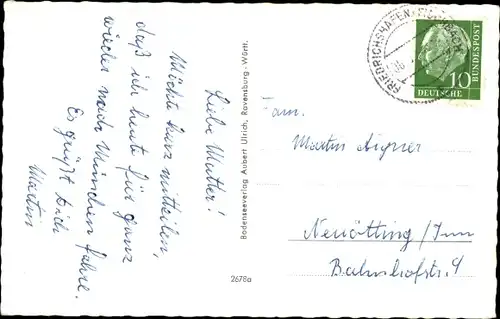 Liebe Mutter!
Möchte kurz mitteilen,
daß ich heute für ganz
wieder nach München fahre.
Es grüßt Dich
Martin
Bodenseeverlag Aubert Ulrich, Ravensburg-Württ.
2678a
FRIEDRICHSHAFEN
10
DEUTSCHE
BUNDESPOST
Fam.
Martin Aigner
Neuötting / Inn
Bahnhofstr. 9